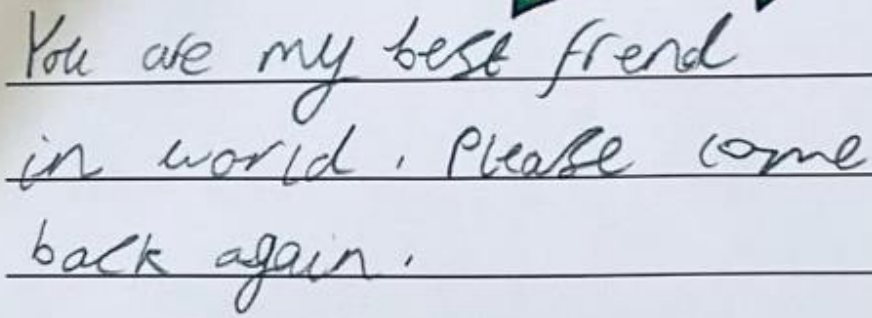 You are my best frend
in world. Please come
back again.